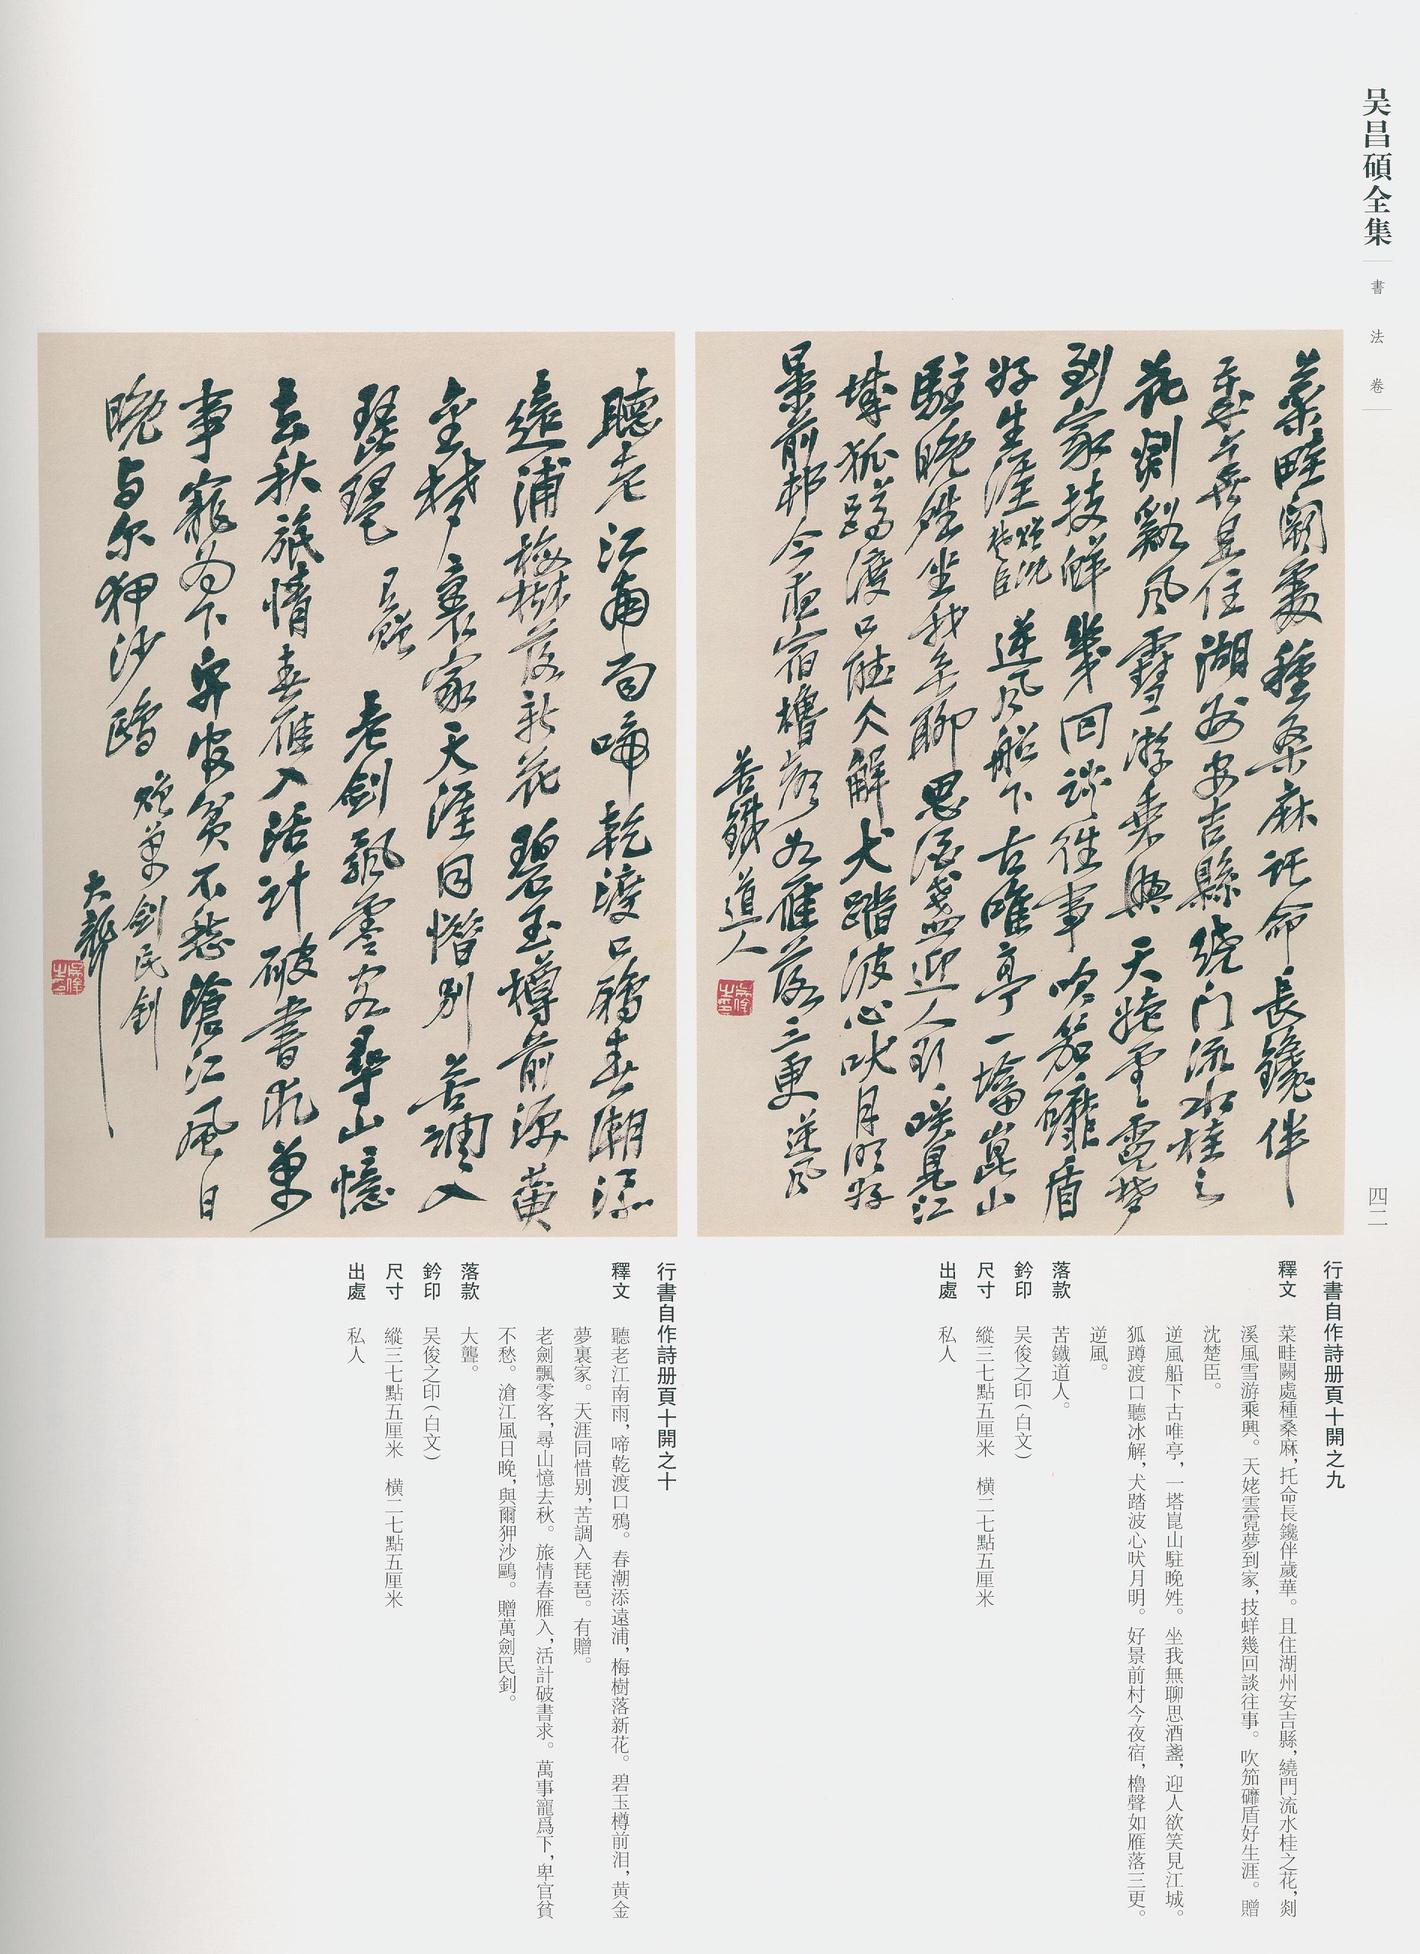 吴昌碩全集
書法卷
四二
菜畦闕處種桑麻託命長鑱伴
歲華且住湖州安吉縣绕门流水桂之
花剡谿风雪游乘興天姥雲霓夢
到家技蛘幾回談往事吹笳礳盾
好生涯贈沈楚臣逆风船下古唯亭一塔崑山
駐晚甠坐我无聊思酒盏迎人欲咲見江
城狐蹲渡口聽仌解犬踏波心吠月明好
景前邨今夜宿櫓聲如雁落三更逆风
苦鐵道人
聽老江南雨啼乾渡口鴉春潮添
遠浦梅樹落新花碧玉樽前淚黄
金夢裏家天涯同惜别苦調入
琵琶有贈老劍飄零客尋山憶
去秋旅情春雁入活計破書求萬
事寵为下卑官貧不愁滄江風日
晚与尔狎沙鷗贈萬劍民釗
大聾
行書自作詩册頁十開之九
釋文 菜畦闕處種桑麻，托命長鑱伴歲華。且住湖州安吉縣，繞門流水桂之花，剡
溪風雪游乘興。天姥雲霓夢到家，技蛘幾回談往事。吹笳礳盾好生涯。贈
沈楚臣。
逆風船下古唯亭，一塔崑山駐晚甠。坐我無聊思酒盞，迎人欲笑見江城。
狐蹲渡口聽冰解，犬踏波心吠月明。好景前村今夜宿，櫓聲如雁落三更。
逆風。
落款 苦鐵道人。
鈐印 吴俊之印（白文）
尺寸 縱三七點五厘米 横二七點五厘米
出處 私人
行書自作詩册頁十開之十
釋文 聽老江南雨，啼乾渡口鴉。春潮添遠浦，梅樹落新花。碧玉樽前泪，黄金
夢裏家。天涯同惜别，苦調入琵琶。有贈。
老劍飄零客，尋山憶去秋。旅情春雁入，活計破書求。萬事寵爲下，卑官貧
不愁。滄江風日晚，與爾狎沙鷗。贈萬劍民釗。
落款 大聾。
鈐印 吴俊之印（白文）
尺寸 縱三七點五厘米 横二七點五厘米
出處 私人